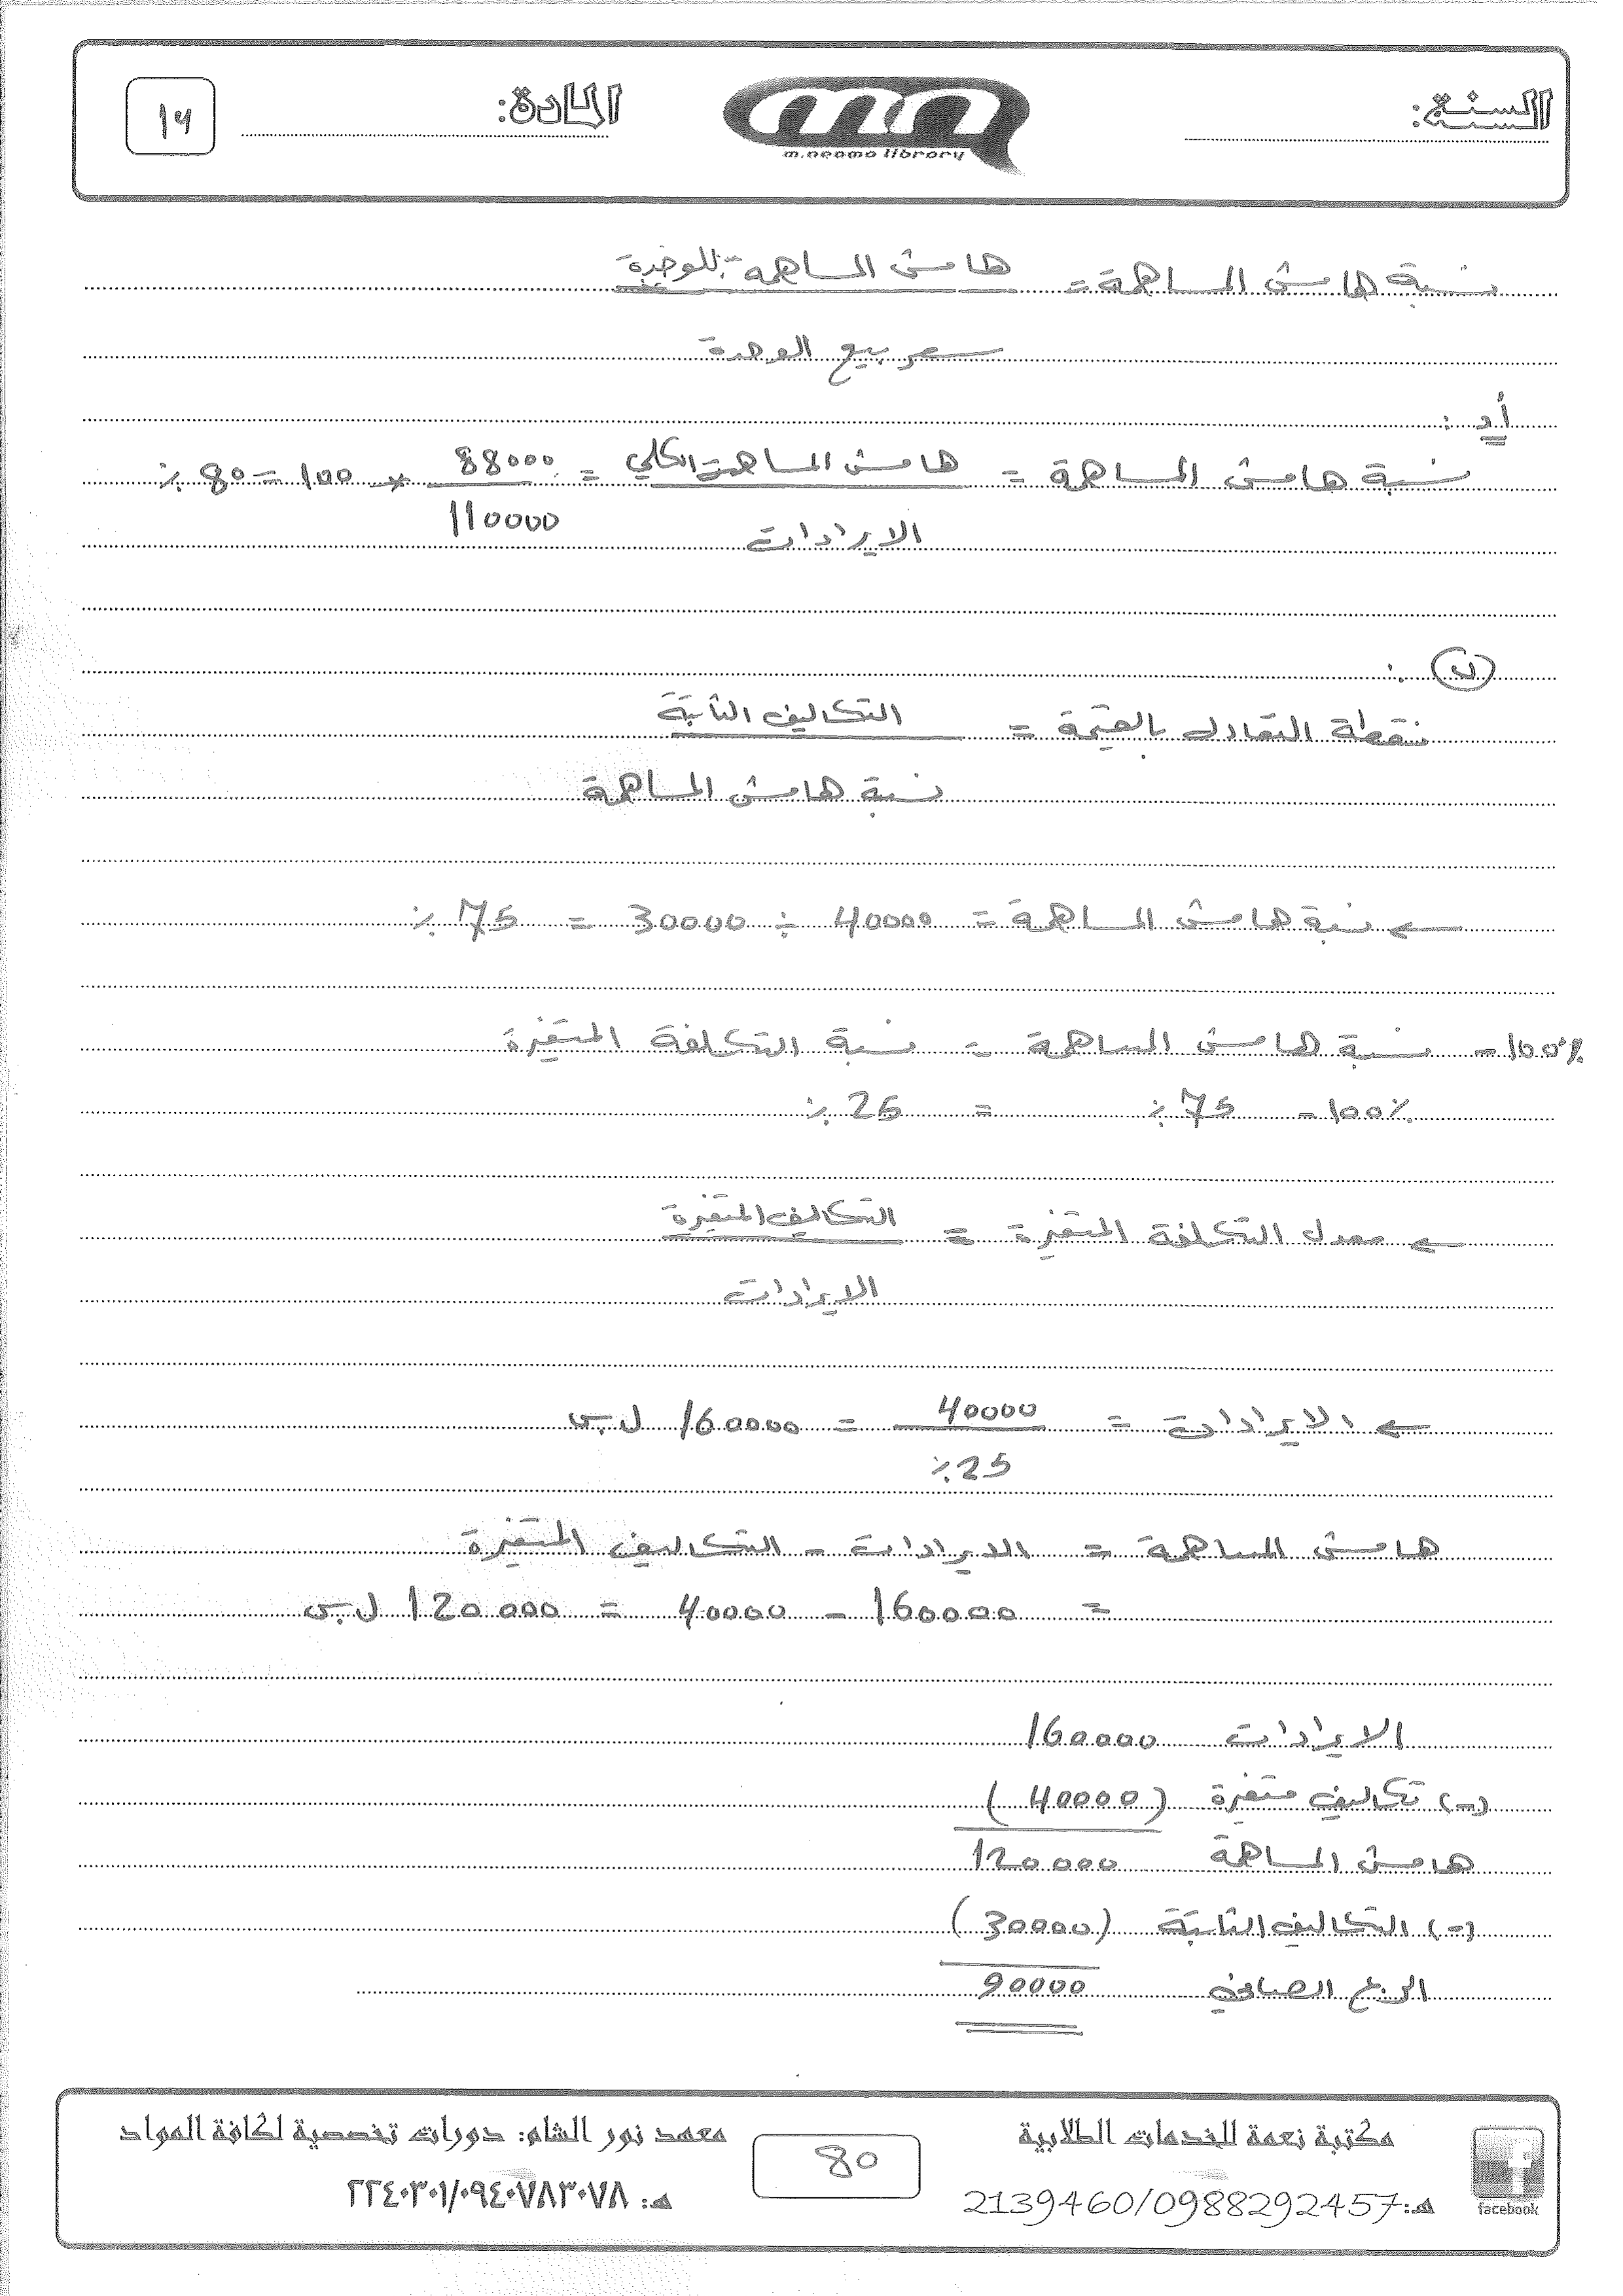 السنة:
m.neama library
المادة:
14
نسبة هامش المساهمة = هامش المساهمة للوحدة
سعر بيع الوحدة
أو :
نسبة هامش المساهمة = هامش المساهمة الكلي = 88000 * 100 = 80 %
الايرادات 110000
ن :
نقطة التعادل بالقيمة = التكاليف الثابتة
نسبة هامش المساهمة
← نسبة هامش المساهمة = 40000 ÷ 30000 = 75 %
100% - نسبة هامش المساهمة = نسبة التكلفة المتغيرة
100% - 75 % = 25 %
← معدل التكلفة المتغيرة = التكاليف المتغيرة
الايرادات
← الايرادات = 40000 = 160000 ل.س
25 %
هامش المساهمة = الايرادات - التكاليف المتغيرة
= 160000 - 40000 = 120000 ل.س
الايرادات 160000
(-) تكاليف متغيرة (40000)
هامش المساهمة 120000
(-) التكاليف الثابتة (30000)
الربح الصافي 90000
facebook
مكتبة نعمة للخدمات الطلابية
هـ: 2139460/0988292457
80
معهد نور الشام: دورات تخصصية لكافة المواد
هـ: ٢٢٤٠٣٠١/٠٩٤٠٧٨٣٠٧٨